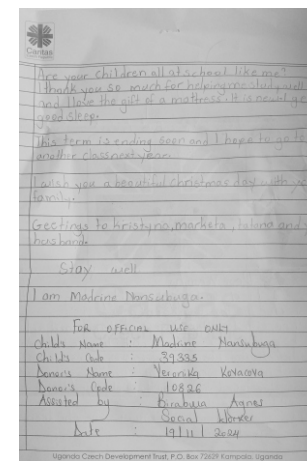 Caritas
Are your children all at school like me"
I thank you so much for helping me study well
and I love the gift of a mattress. It is new
good sleep.
This term is ending soon and I hope to go to
another class next year.
I wish you a beautiful christmas day with
family.
Geetings to kristyna, marketa, and
husband.
Stay well
I am Madrine Nansubuga.
FOR OFFICIAL USE ONLY
Child's Name : Madrine Nansubuga
Child's Code : 39335
Donor's Name : Veronika Kovacova
Donor's Code : 10826
Assisted by : Birabwa Agnes
Social Worker
Date : 19/11/2024
Uganda Czech Development Trust, P.O. Box 72639 Kampala Uganda